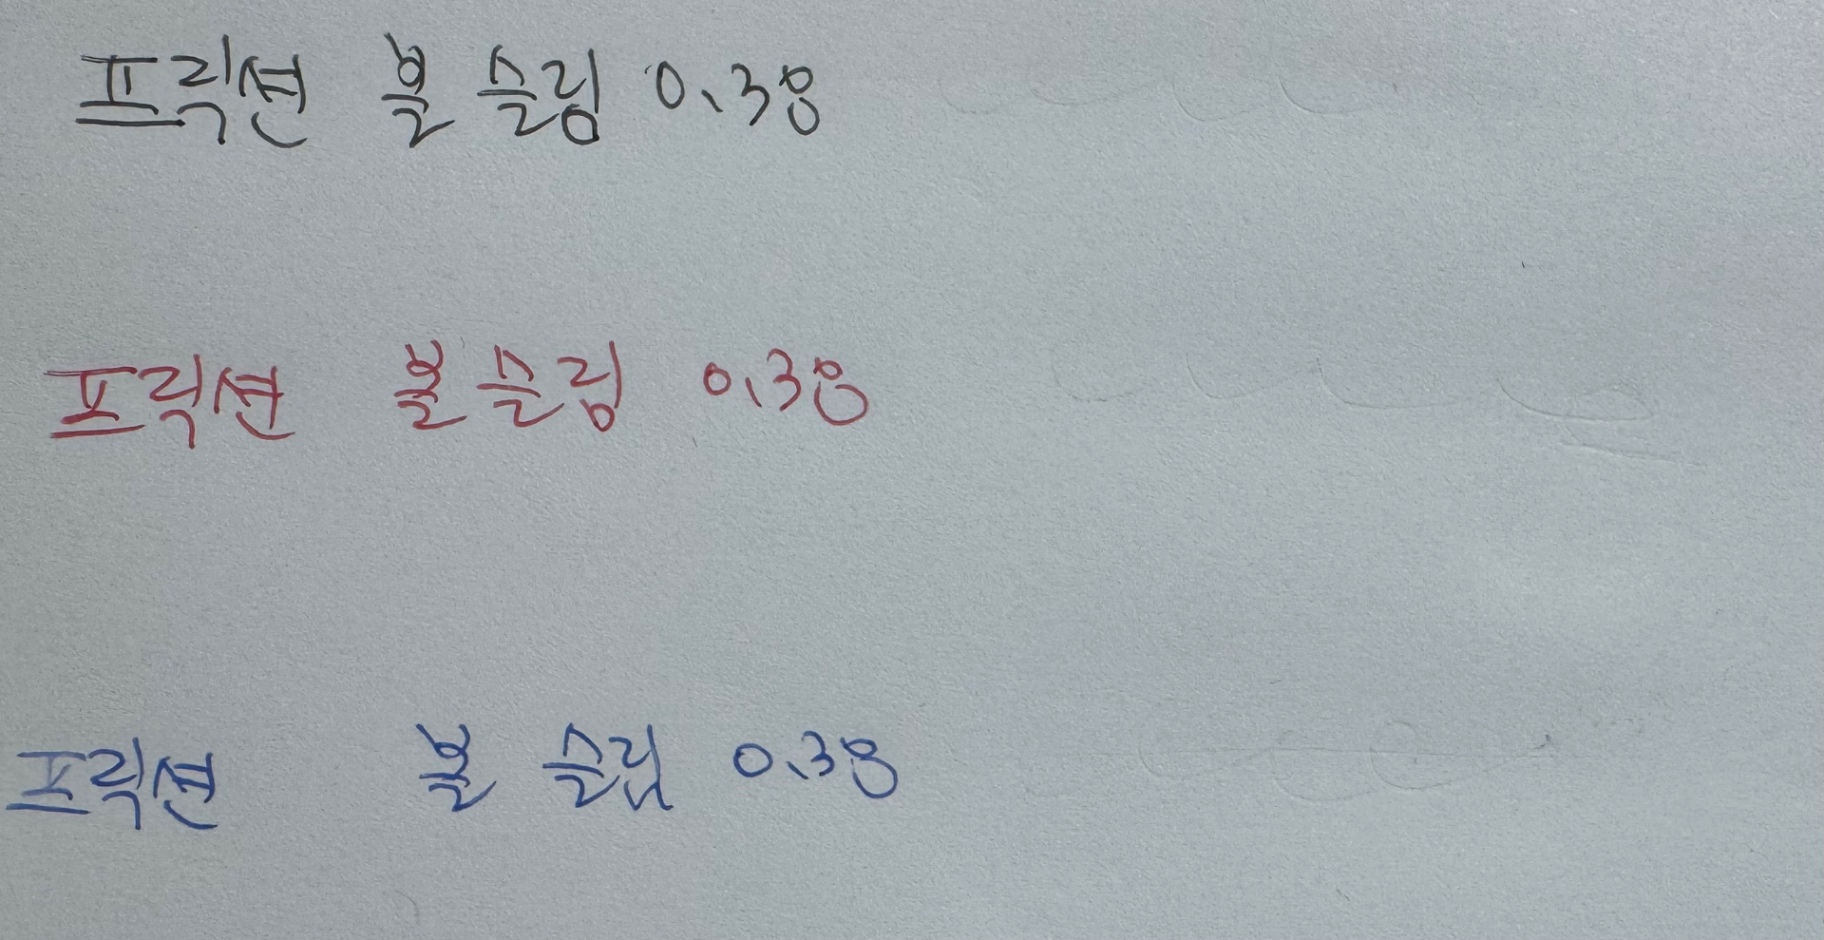 프릭션 볼 슬림 0.38
프릭션 볼 슬림 0.38
프릭션 볼 슬림 0.38